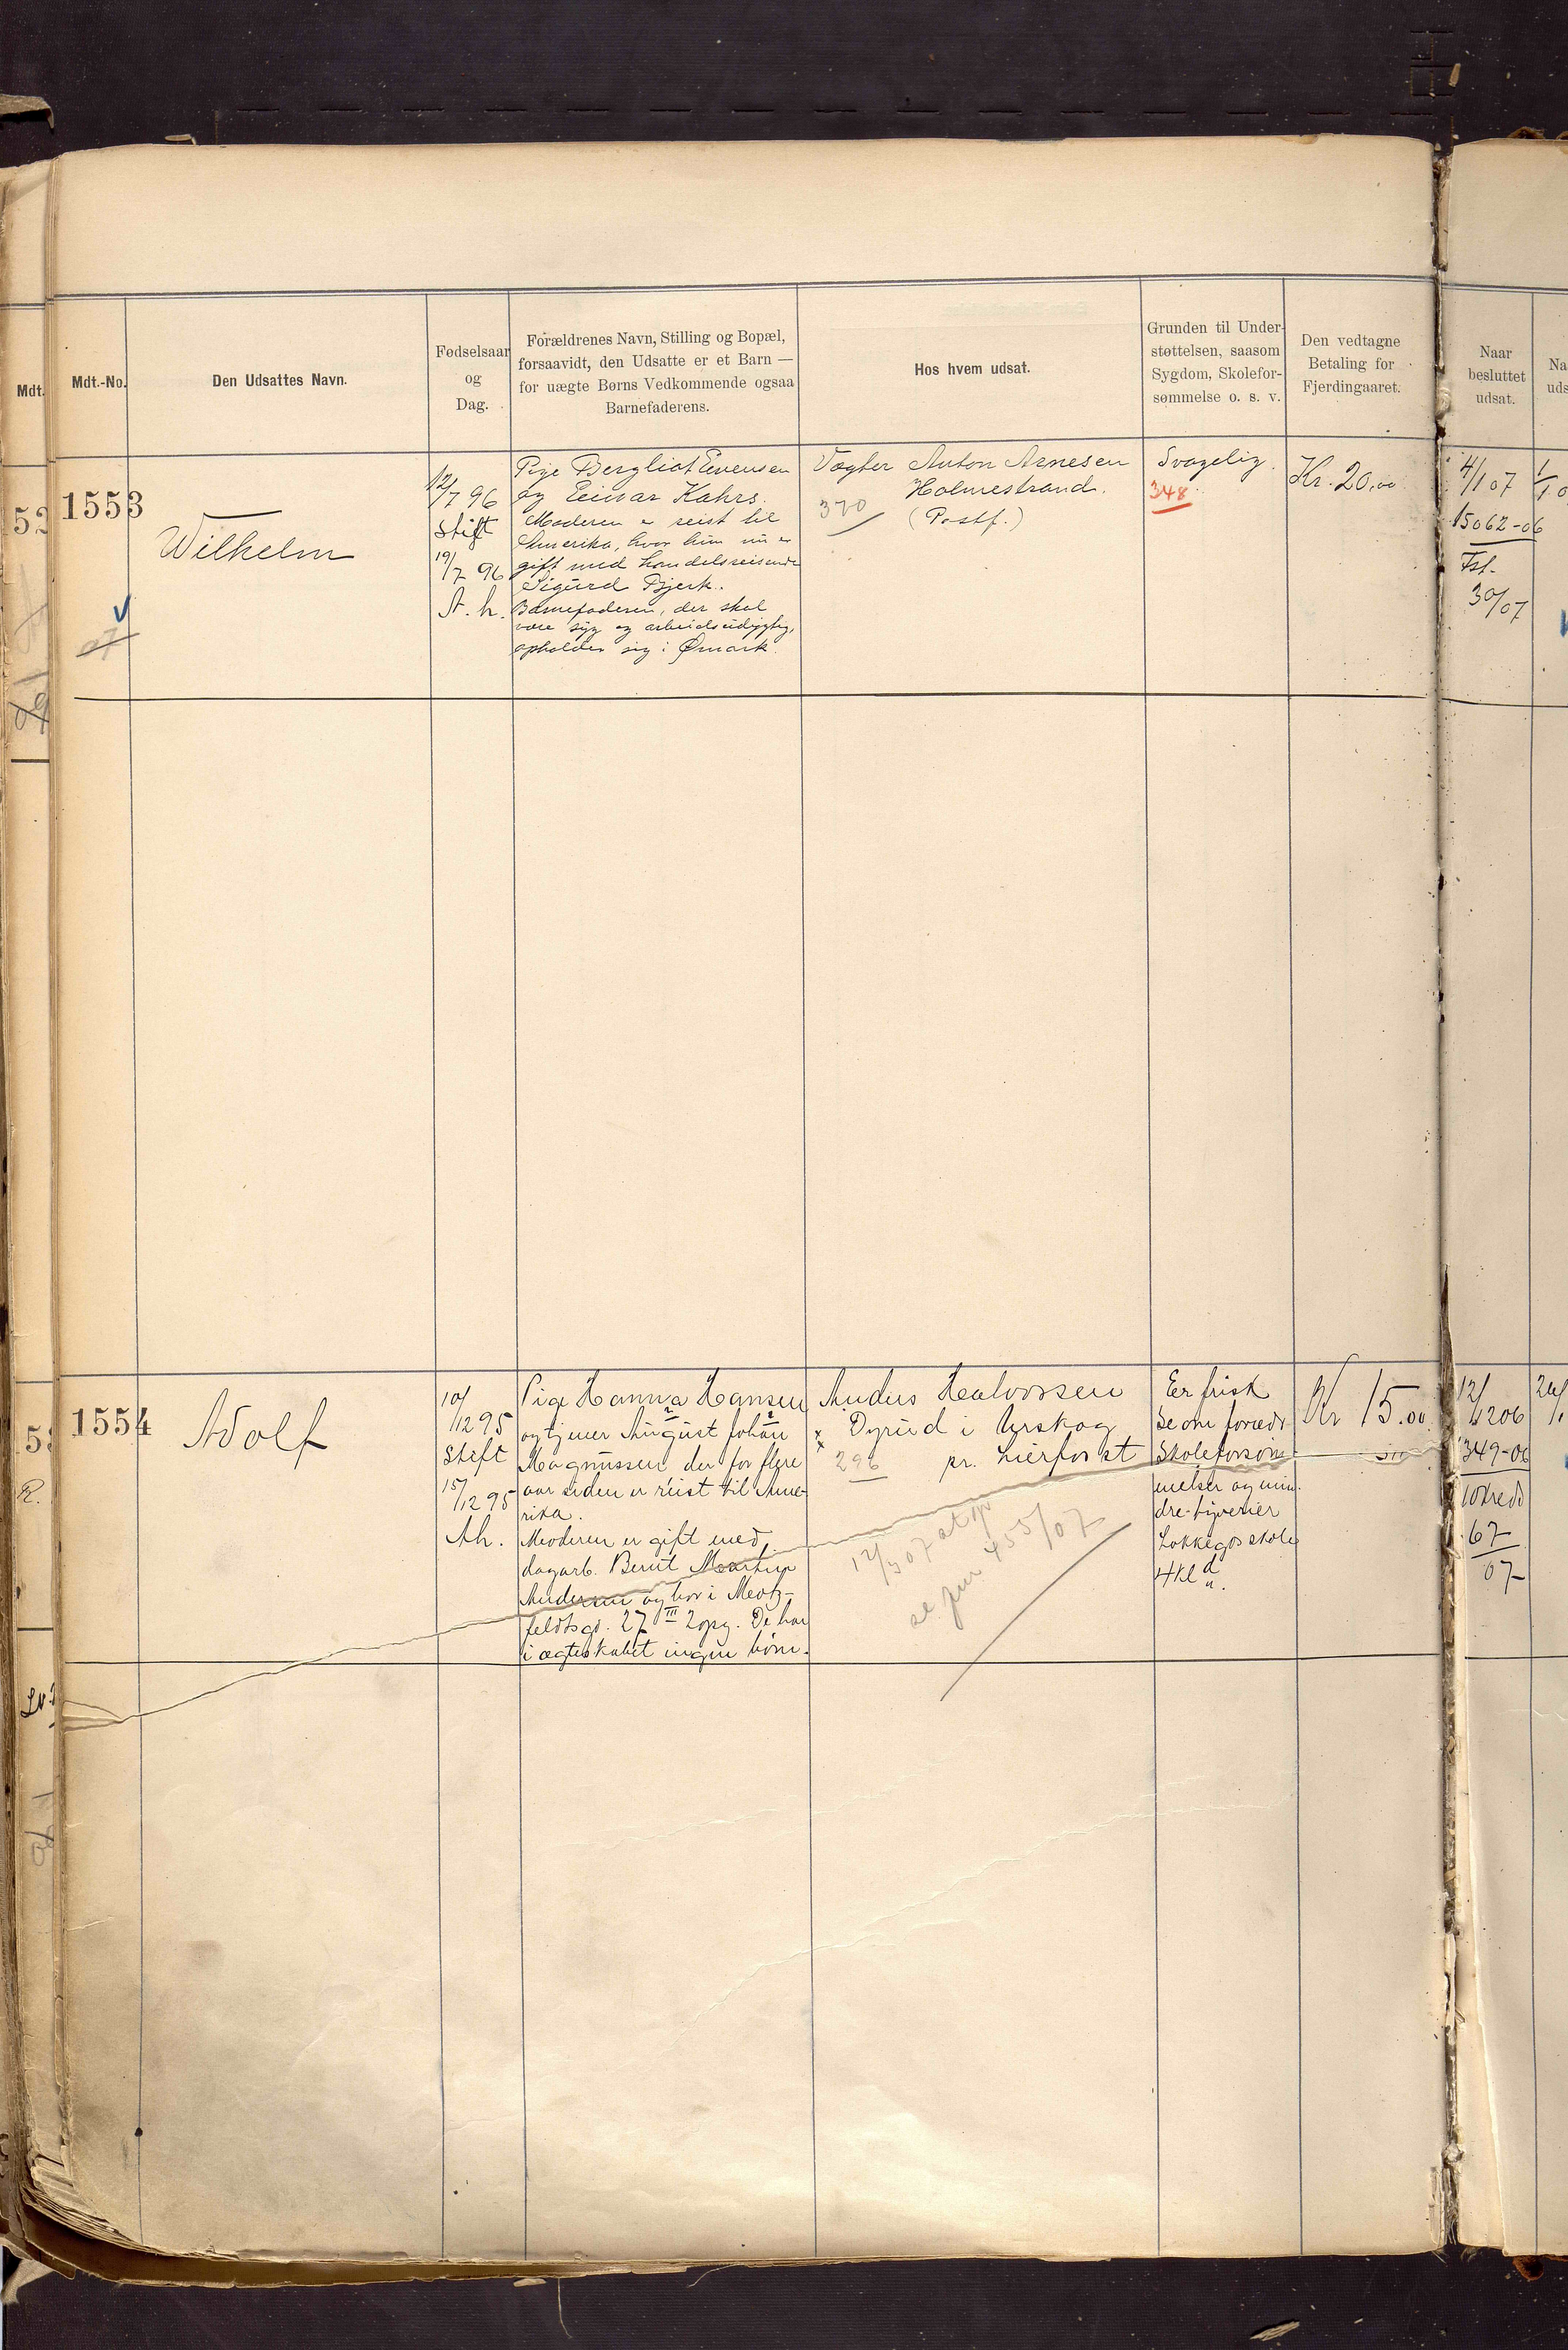 Mdt.
Mdt.-No.
Den Udsattes Navn.
Fødselsaar
og
Dag.
Forældrenes Navn, Stilling og Bopæl,
forsaavidt, den Udsatte er et Barn —
for uægte Børns Vedkommende ogsaa
Barnefaderens.
Hos hvem udsat.
Grunden til Under-
støttelsen, saasom
Sygdom, Skolefor-
sømmelse o. s. v.
Den vedtagne
Betaling for
Fjerdingaaret.
Naar
besluttet
udsat.
Na
uds
1553
Wilhelm
12/7 96
Stift
19/7 96
A. h.
Pige Bergliot Evensen
og Einar Kahrs.
Moderen er reist til
Amerika, hvor hun nu er
gift med handelsreisende
Sigurd Bjerk.
Barnefaderen, der skal
være syg og arbeidsudygtig,
opholder sig i Ømark.
Vægter Anton Arnesen
Holmestrand.
(Postf.)
370
Svagelig.
348
Kr. 20,00
4/1 07
15062-06
Fsf.
30/07
1554
Adolf
10/12 95
Stift
15/12 95
Ah.
Pige Hanna Hansen
og tjener August Johan
Magnussen, der for flere
aar siden er reist til Ame-
rika.
Moderen er gift med
dagarb. Bernt Martin
Andersen og bor i Meltz-
feldtsgd. 27 III 2opg. De har
i ægteskabet ingen børn.
Anders Halvorsen
Dyrud i Urskog
pr. Lierfos st
296
12/3 07 st op
455/07
Er frisk
Se om foræld
Skoleforsøm-
melser og min-
dre tyverier
Lakkegds skole
4 kl d
Kr 15.00
12/12 06
349-06
67
07